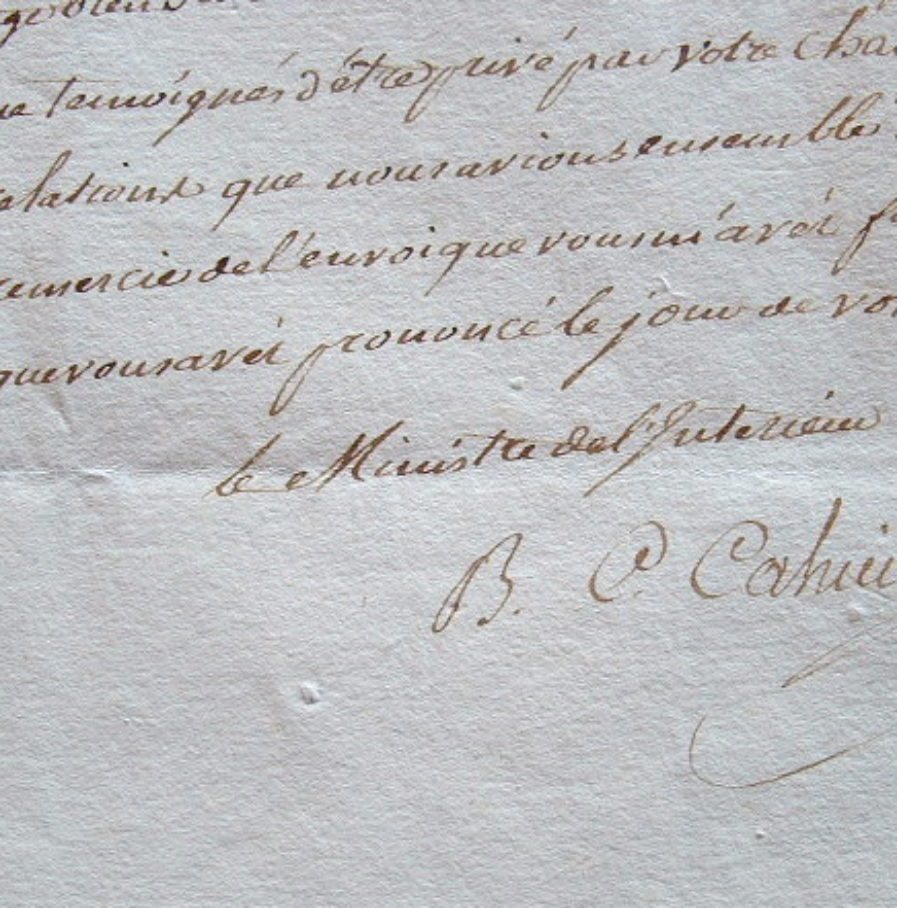 temoignés d'être privé par votre
relations que nous avions ensemble
remercie de l'envoi que vous m'avés
que vous avés prononcé le jour de
le Ministre de l'Interieur
B. C. Cahier